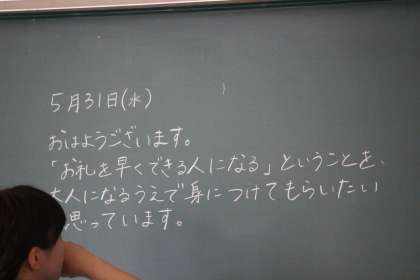 5月31日(水)
おはようございます。
「お礼を早くできる人になる」ということを、
大人になるうえで身につけてもらいたい
思っています。